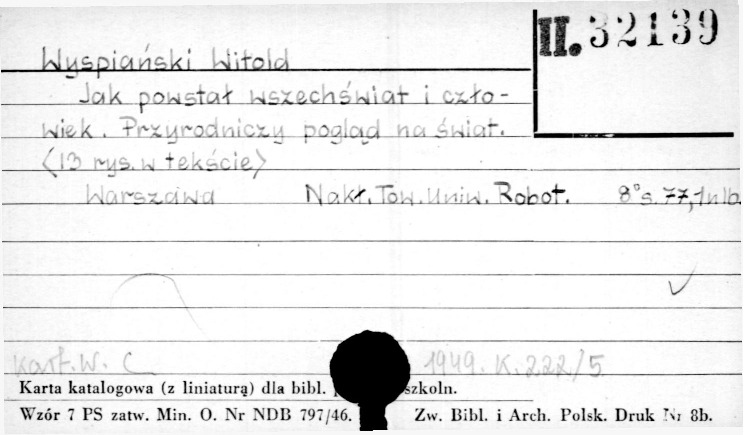 II. 32139
Wyspiański Witold
Jak powstał wszechświat i czło-
wiek. Przyrodniczy pogląd na świat.
(13 rys. w tekście)
Warszawa Nakł. Tow. Uniw. Robot. 8° s. 77, 1 nlb.
kart. W. C 1949. K. 222/5
Karta katalogowa (z liniaturą) dla bibl. szkoln.
Wzór 7 PS zatw. Min. O. Nr NDB 797/46. Zw. Bibl. i Arch. Polsk. Druk Nr 8b.